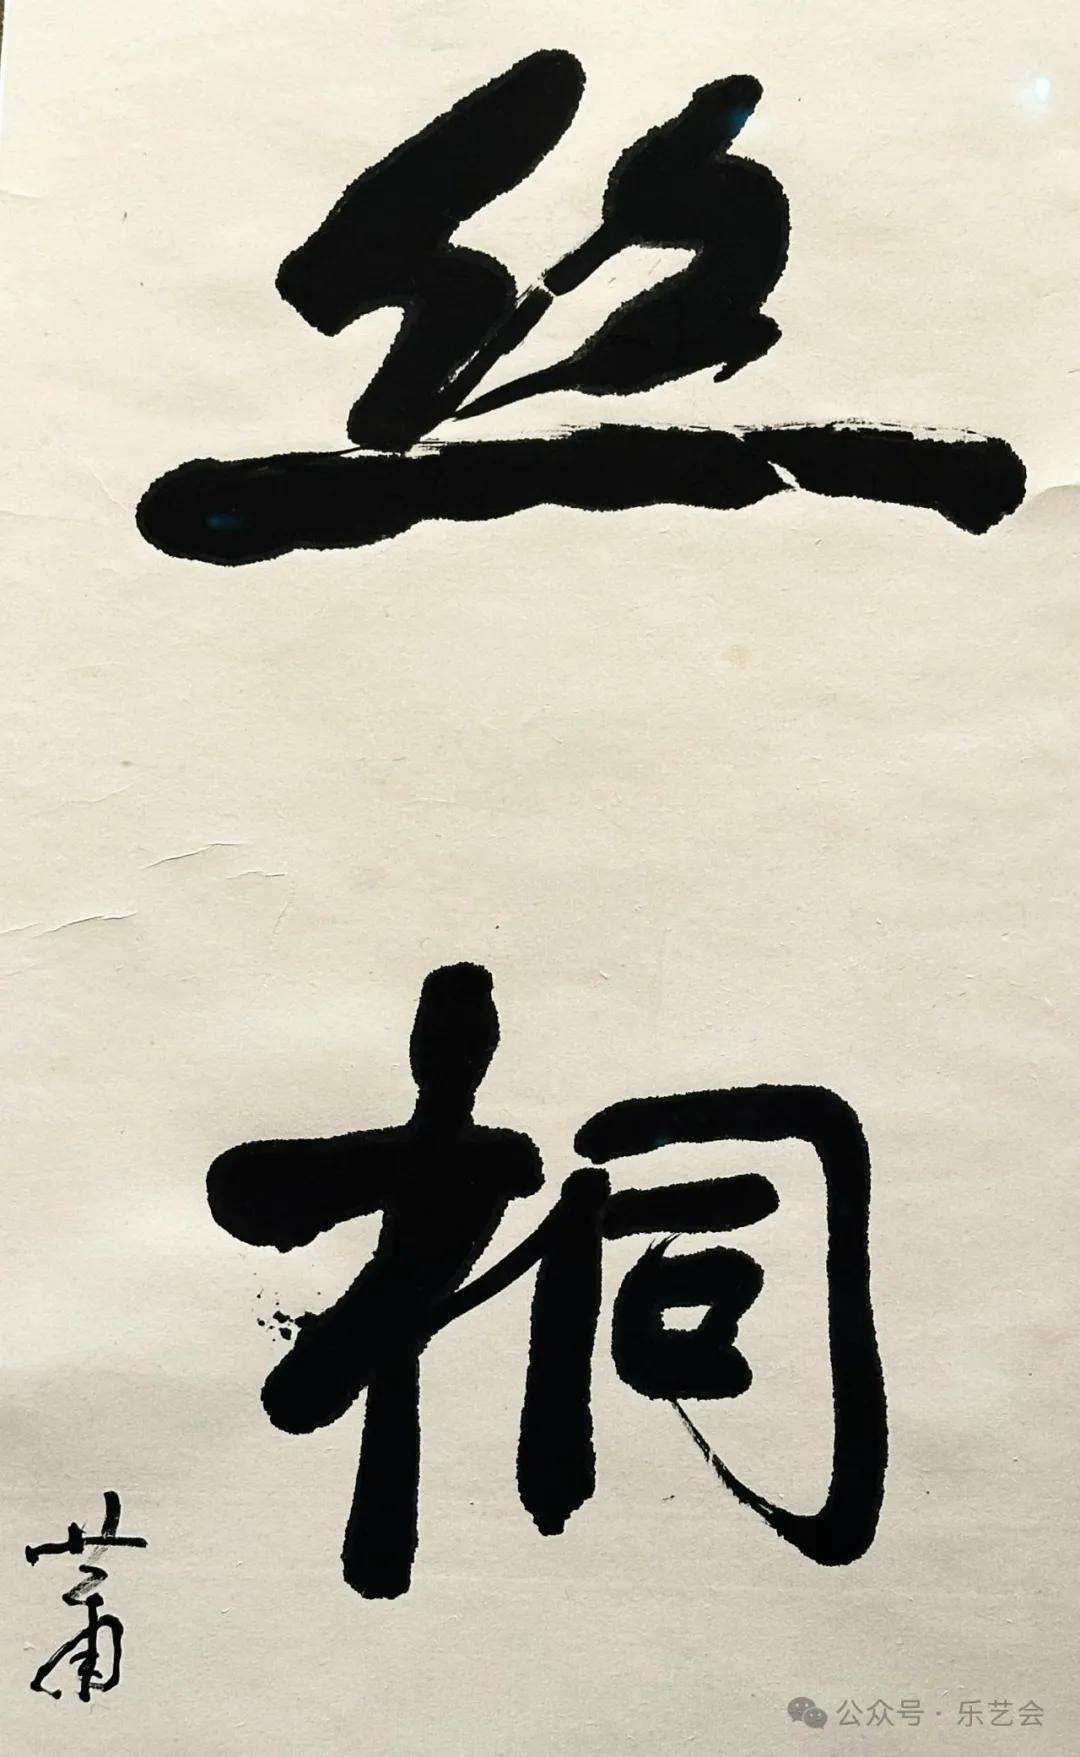 丝
桐
萧
公众号·乐艺会